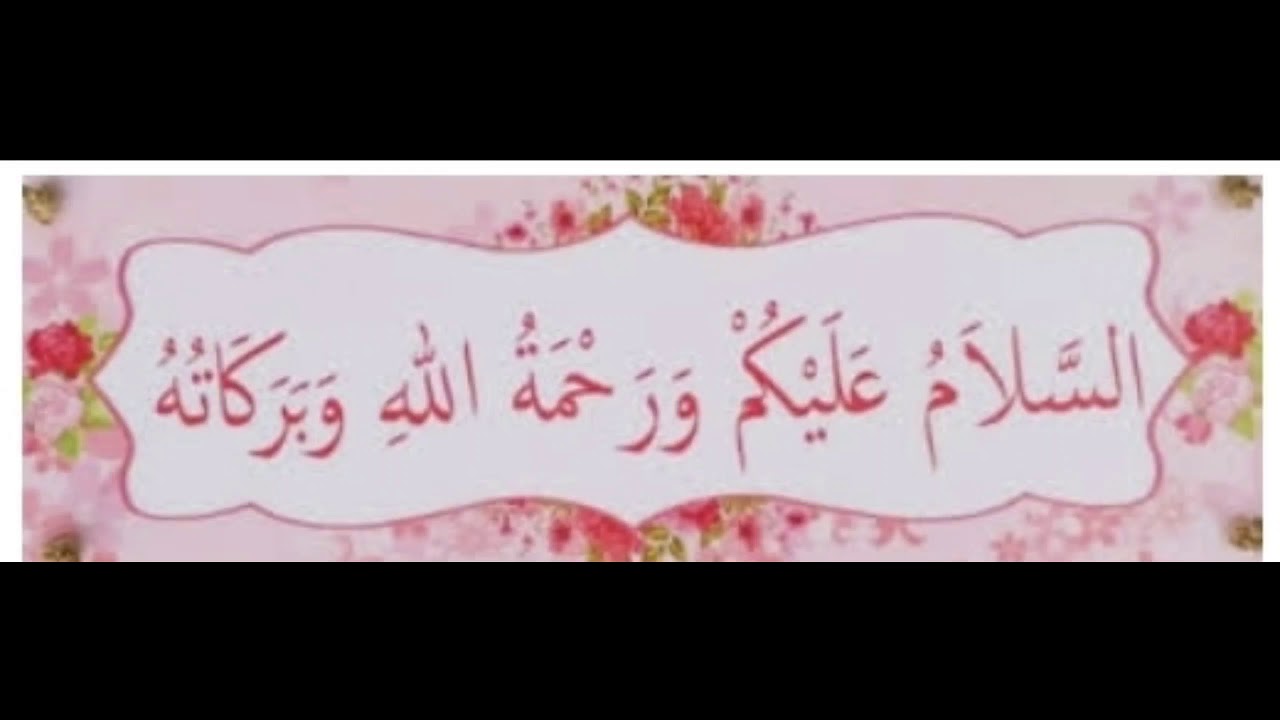 السَّلاَمُ عَلَيْكُمْ وَرَحْمَةُ اللهِ وَبَرَكَاتُهُ